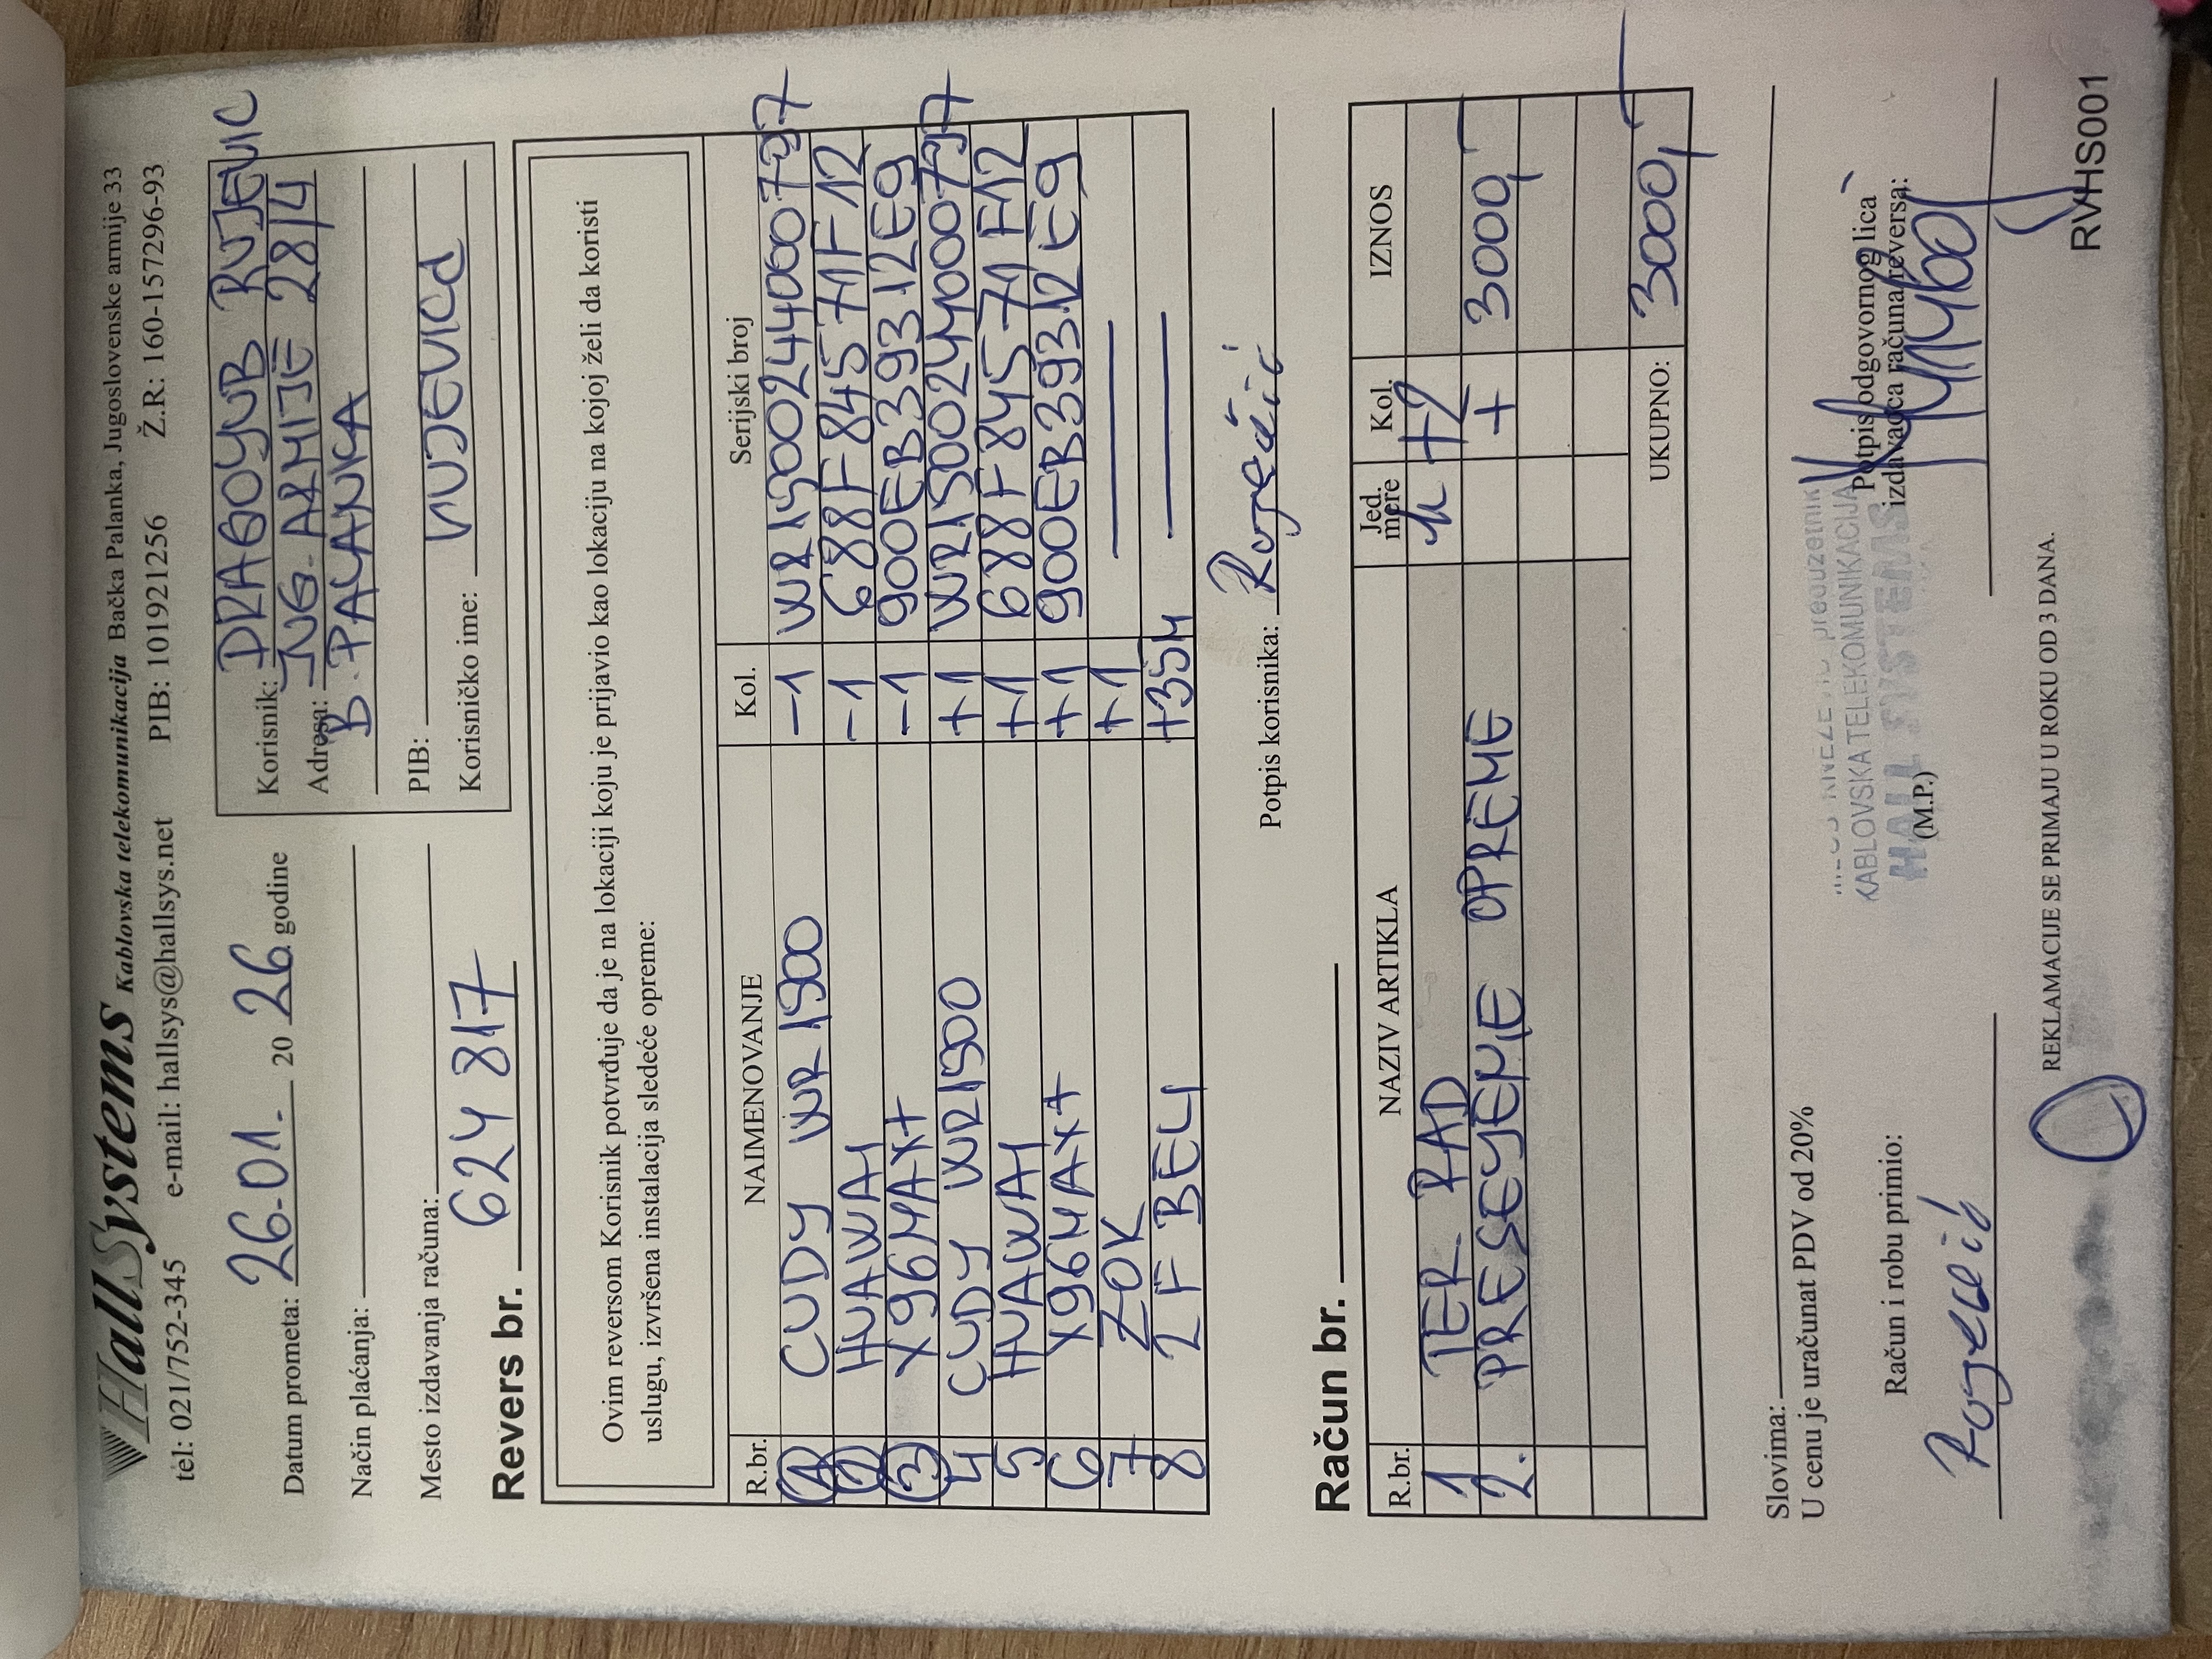 HallSystems Kablovska telekomunikacija Bačka Palanka, Jugoslovenske armije 33
tel: 021/752-345 e-mail: hallsys@hallsys.net PIB: 101921256 Ž.R: 160-157296-93
Datum prometa: 26.01. 20 26. godine
Način plaćanja:
Mesto izdavanja računa:
624 817
Korisnik: DRAGOLJUB RUJEVIC
Adresa: JUG. ARMIJE 28/4
B. PALANKA
PIB:
Korisničko ime:
Revers br.
Ovim reversom Korisnik potvrđuje da je na lokaciji koju je prijavio kao lokaciju na kojoj želi da koristi
uslugu, izvršena instalacija sledeće opreme:
R.br. NAIMENOVANJE Kol. Serijski broj
1 CUDY WR 1300 -1
2 HUAWAI -1 688F84571F12
3 X96MAX+ -1 900EB39312E9
4 CUDY WR1300 +1
5 HUAWAI +1 688F84571F12
6 X96MAX+ +1 900EB39312E9
7 ZOK +1
8 2F BELI +35M
Potpis korisnika:
Račun br.
R.br. NAZIV ARTIKLA Jed. mere Kol. IZNOS
1 TER. RAD h +2
2. PRESELJENJE OPREME + 3000,
UKUPNO: 3000,
Slovima:
U cenu je uračunat PDV od 20%
preduzetnik
KABLOVSKA TELEKOMUNIKACIJA
HALL SYSTEMS
Račun i robu primio:
(M.P.)
Potpis odgovornog lica
izdavaoca računa/reversa:
REKLAMACIJE SE PRIMAJU U ROKU OD 3 DANA.
RVHS001